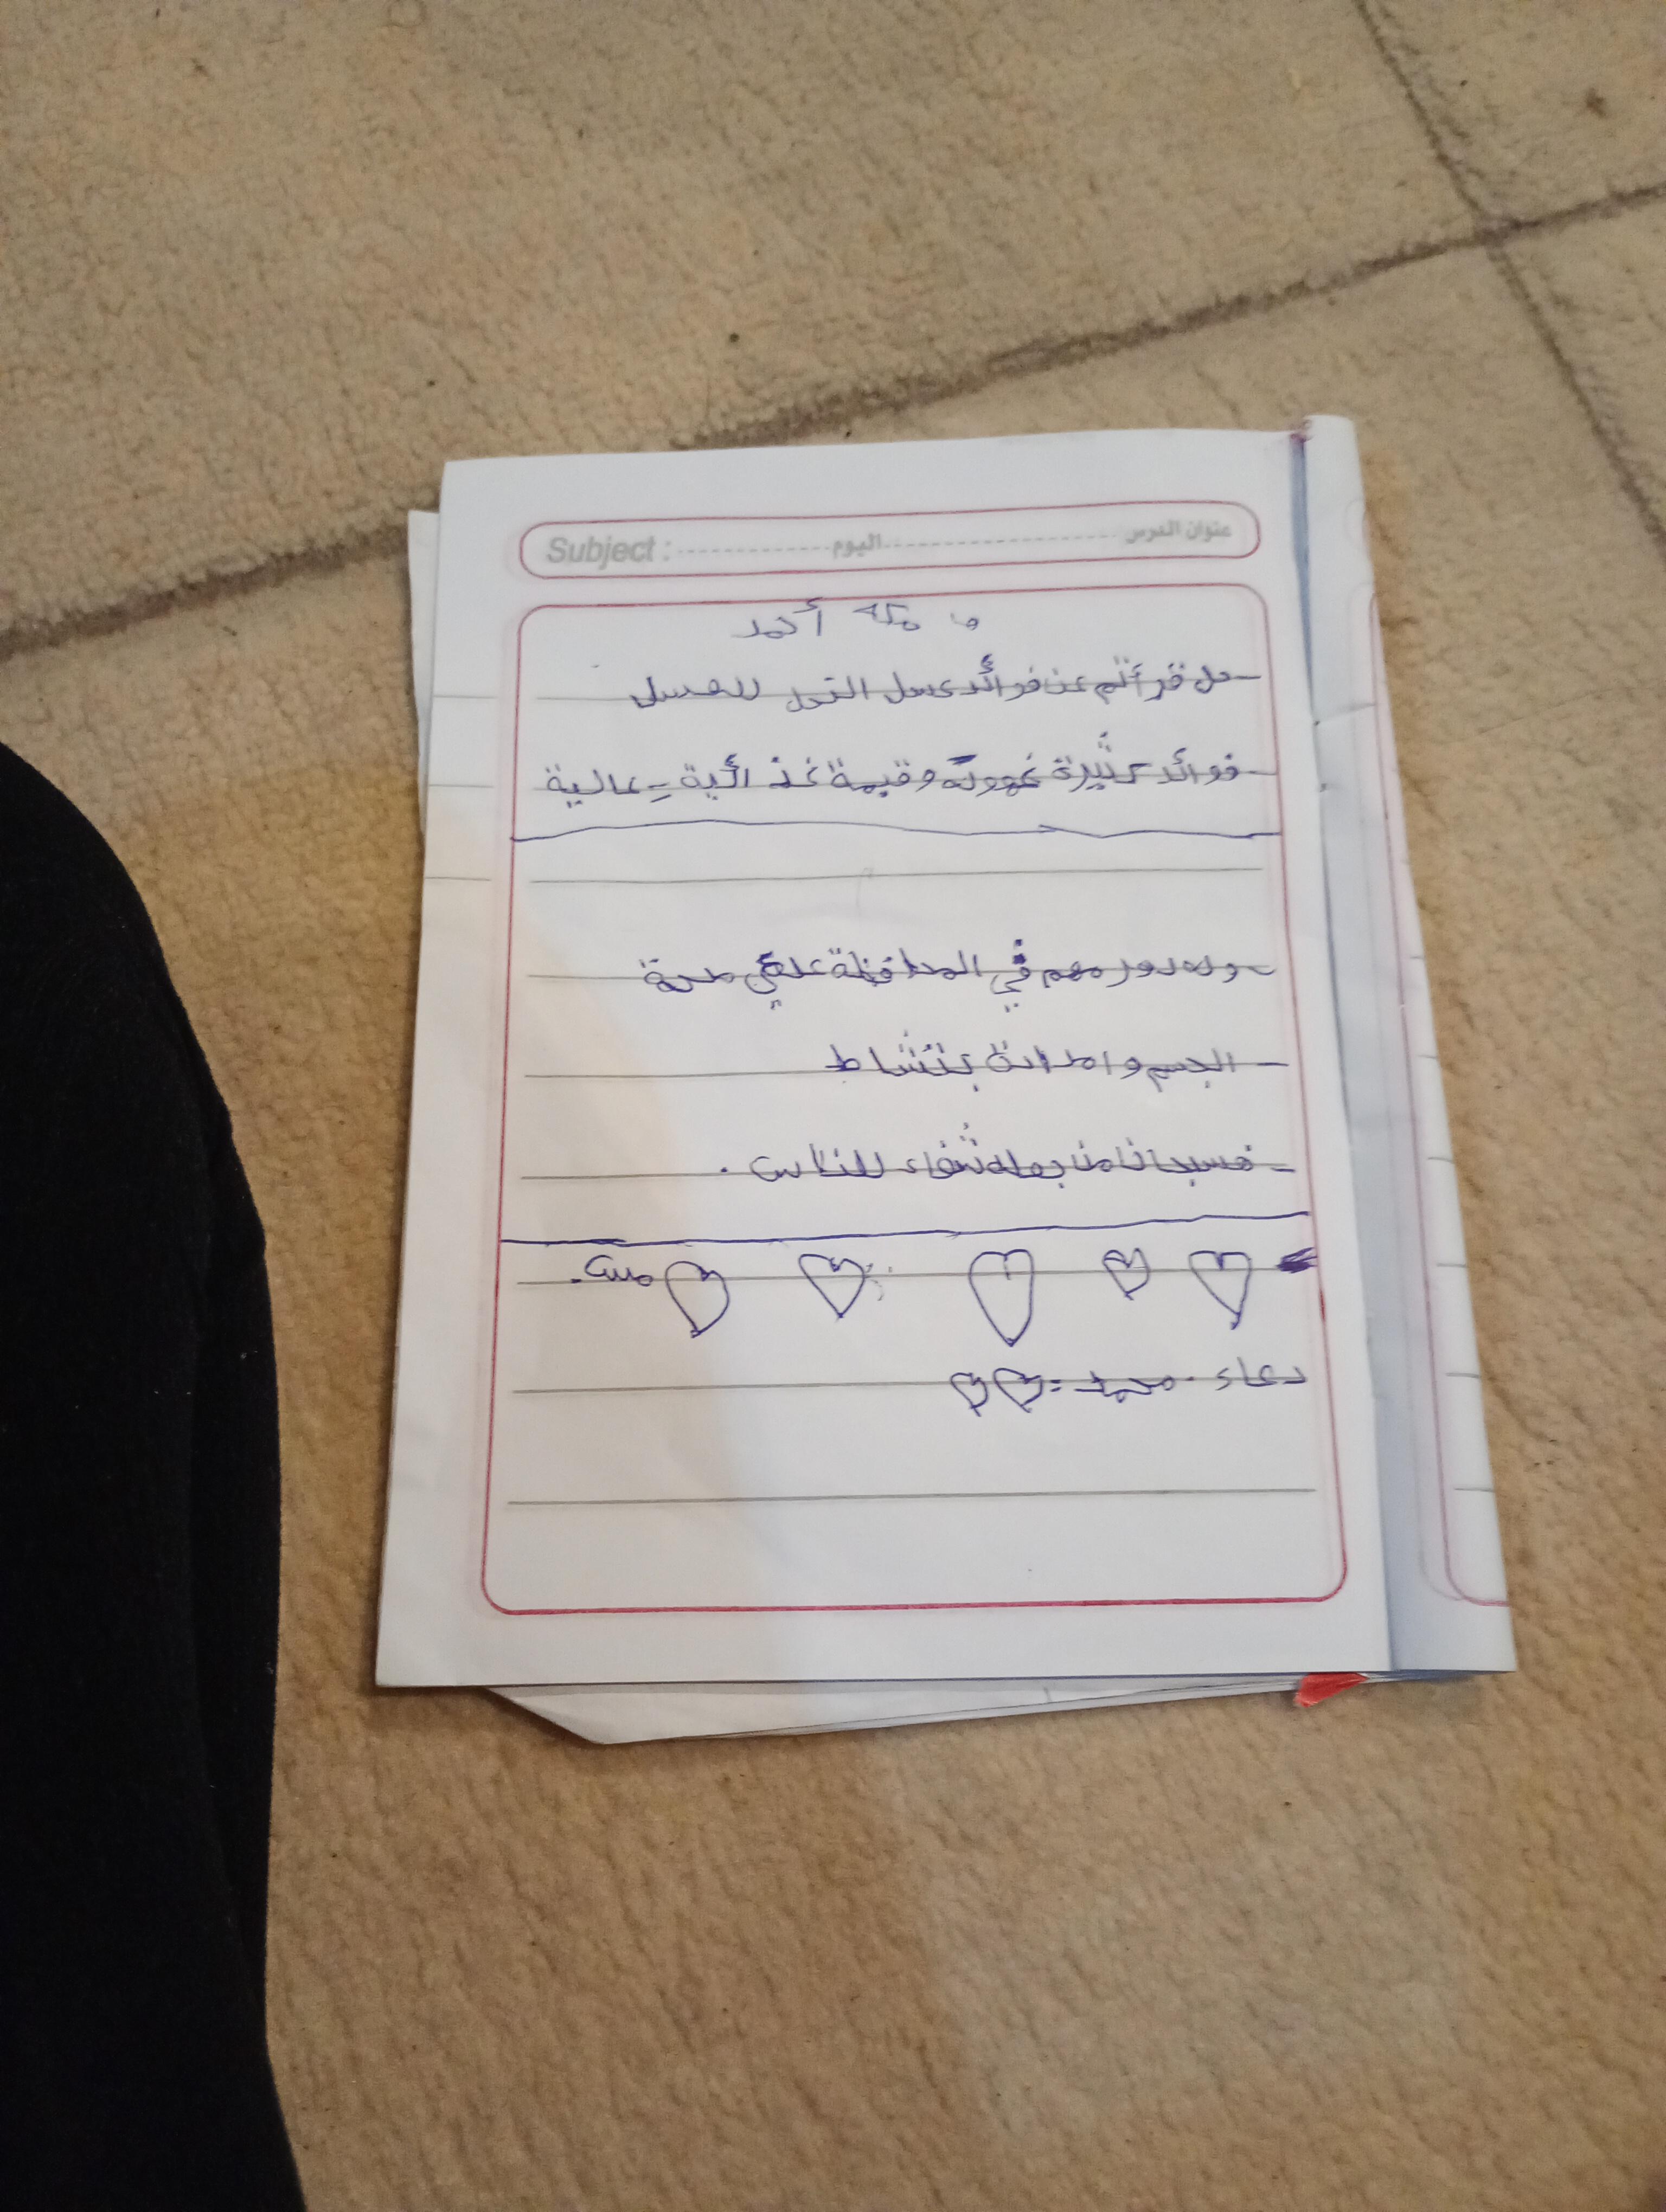 عنوان الدرس ........ اليوم ........ Subject :
مكة أحمد
هل قرأتم عن فوائد عسل النحل للعسل
فوائد كثيرة فهو له وقيمة غذائية عالية
وله دور مهم في المحافظة على صحة
الجسم وامداده بنشاط
فسبحان من جعله شفاء للناس .
مس
دعاء . محمد =